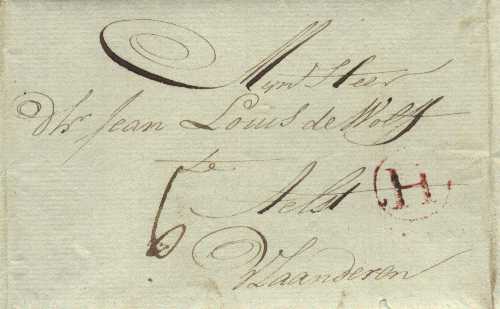 Myn Heer
dhr Jean Louis de Wolff
te
6
Aelst
H.
Vlaanderen